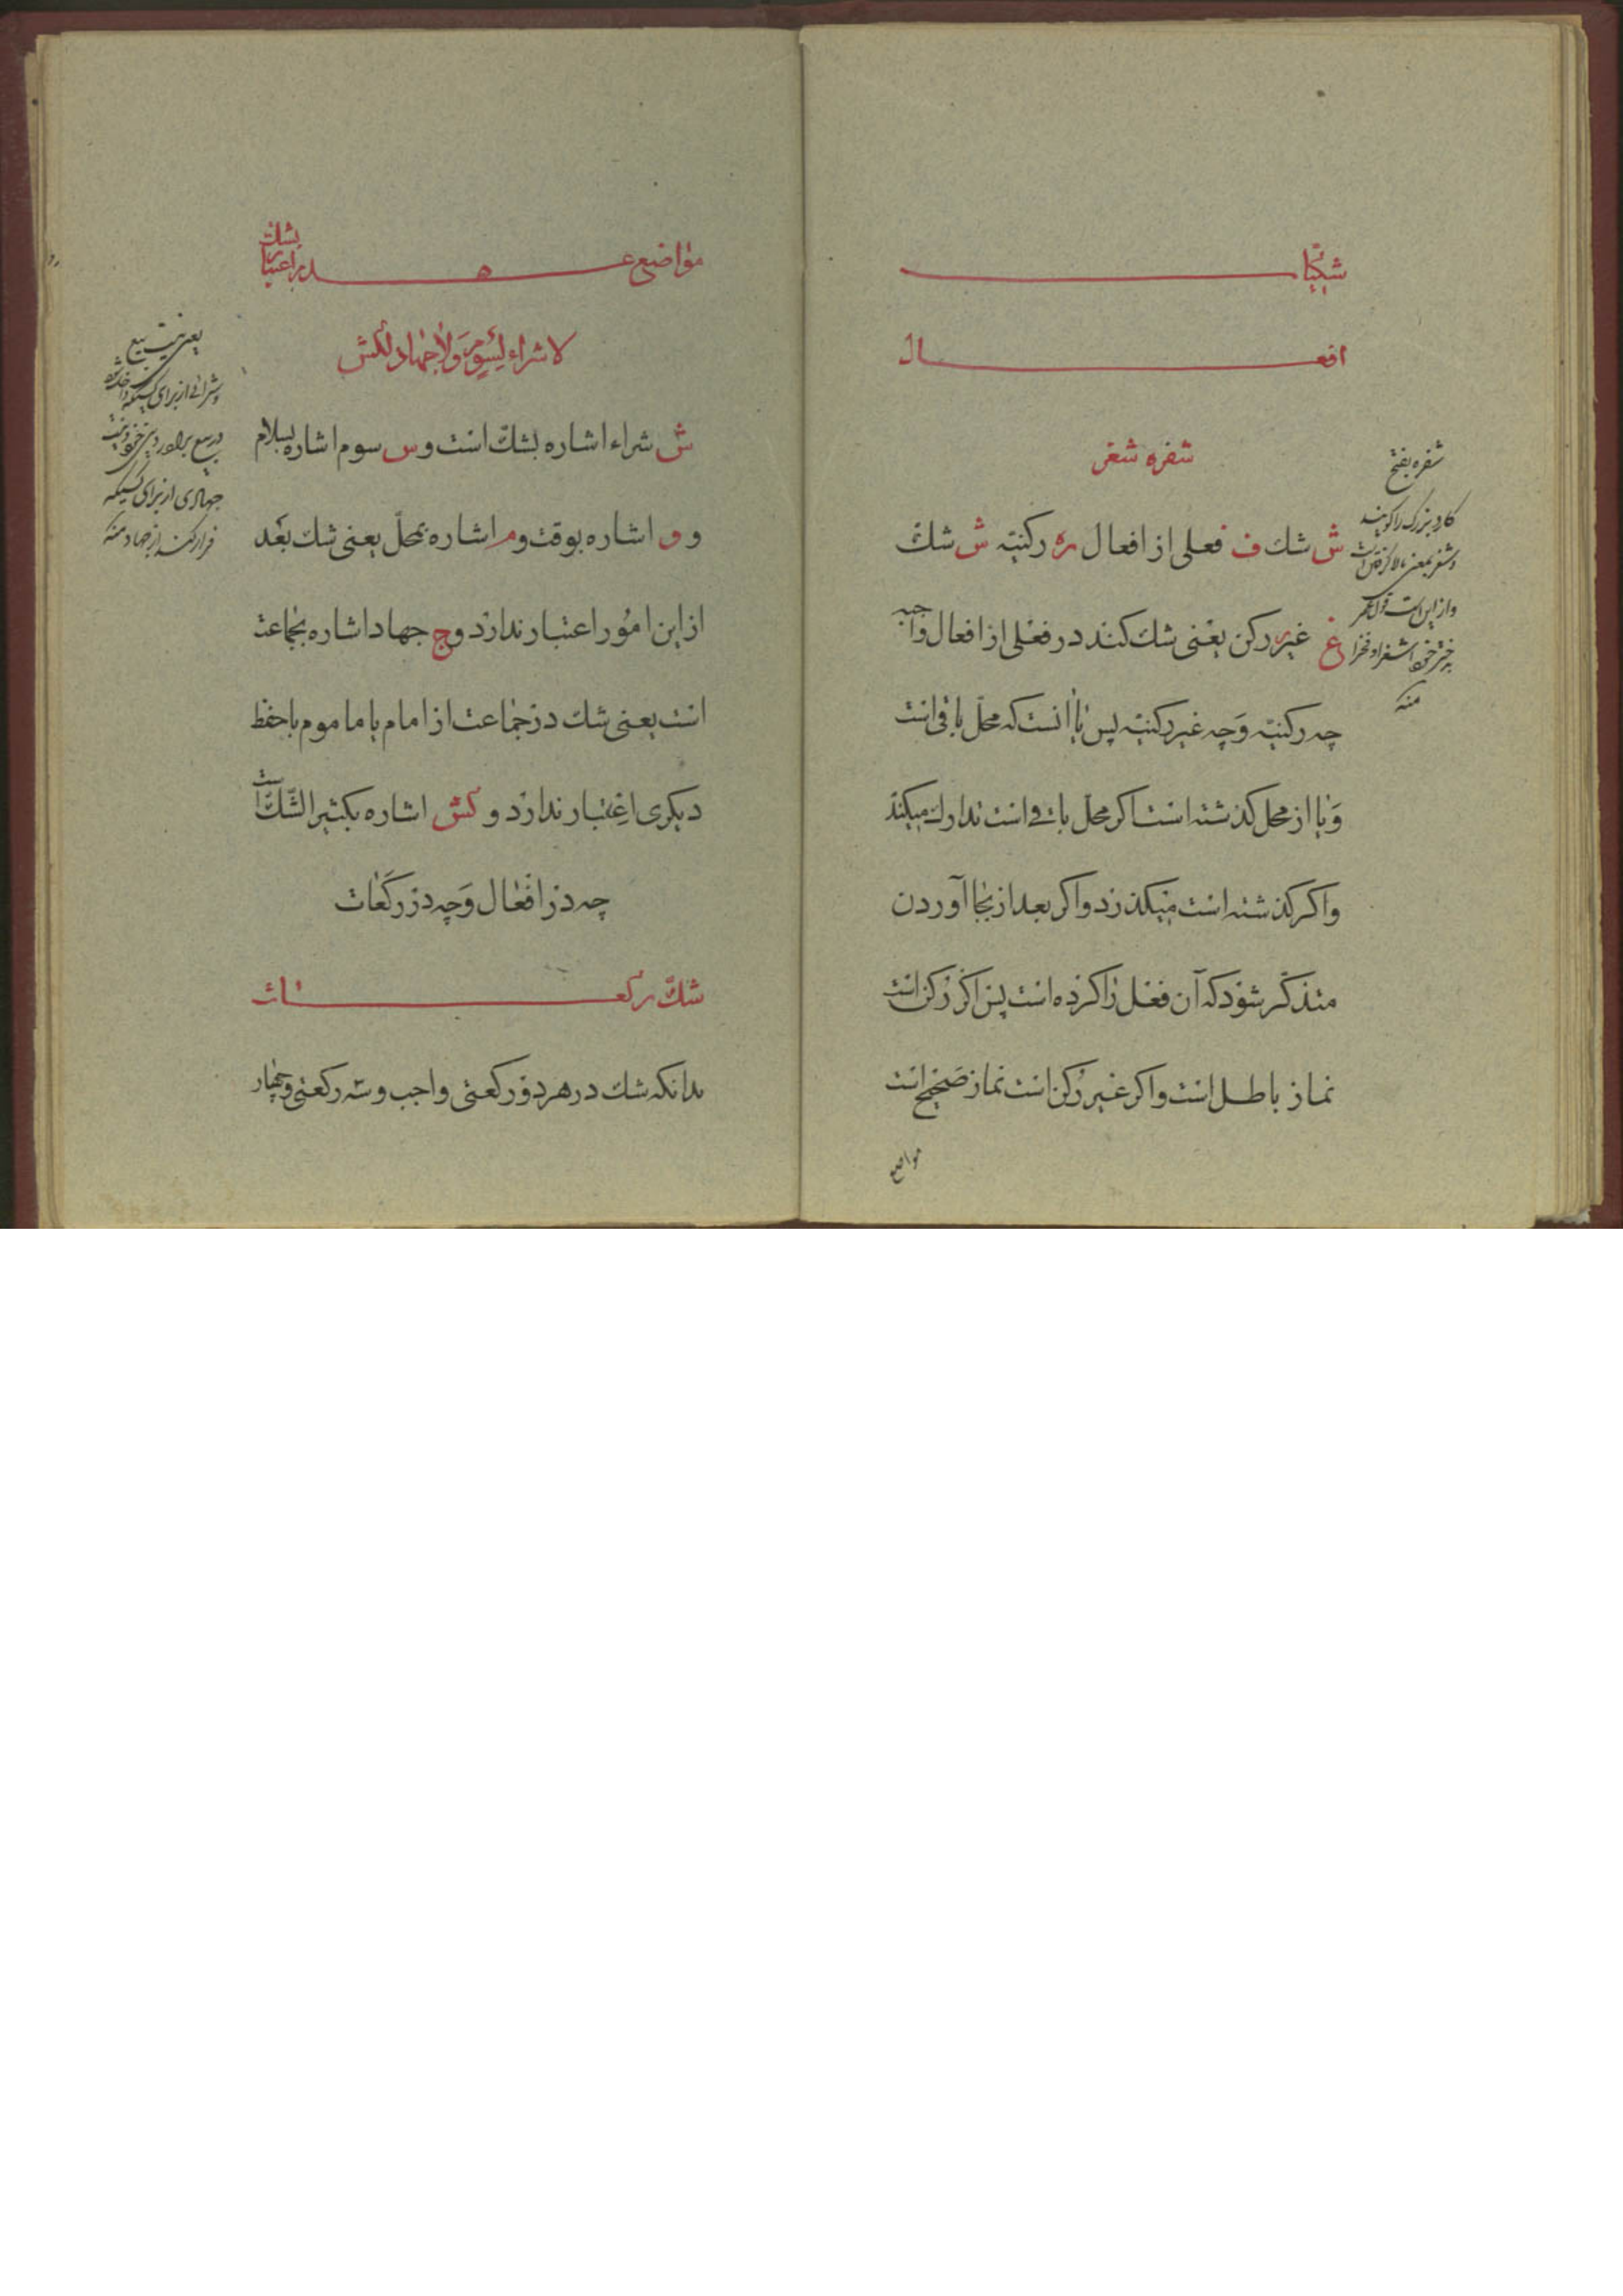 شکیات
افعال
شفره شغر
ش شك ف فعلی از افعال ره رکنیّه ش شك
غ غیر رکن یعنی شك کند در فعلی از افعال واجبه
چه رکنیّه وَچه غیر رکنیّه پس یا انست که محلّ باقی است
وَیا از محل کذشته است اکر محلّ باقی است تدارك میکند
واکر کذشته است میکذرد واکر بعد از بجا آوردن
متذکّر شود که آن فعل را کرده است پس اکر رکن است
نماز باطل است واکر غیر رُکن است نماز صَحیح است
مواضع
شفره بفتح
کارد بزرک را کویند
وشغر بمعنی
واز این است قول
منه
مواضع عدم اعتبار بشك
لا شراء لِسَوم وَلا جهاد لکش
ش شراء اشاره بشكّ است و س سوم اشاره بسلام
و و اشاره بوقت و م اشاره بمحلّ یعنی شك بعَد
از این امُور اعتبار ندارد و ج جهاد اشاره بجماعت
است یعنی شك در جماعت از امام یا ماموم با حفظ
دیکری اعِتبار ندارد و کش اشاره بکثیر الشّكّ است
چه در افعَال وَچه در رکَعات
شكّ رکعات
بدانکه شك در هر دو رکعتی واجب وسه رکعتی وچهار
یعنی نیست بیع
وشرائی از برای کسیکه داخل شود
در بیع برادر دینی خود ونیست
جهادی از برای کسیکه
فرار کند از جهاد منه